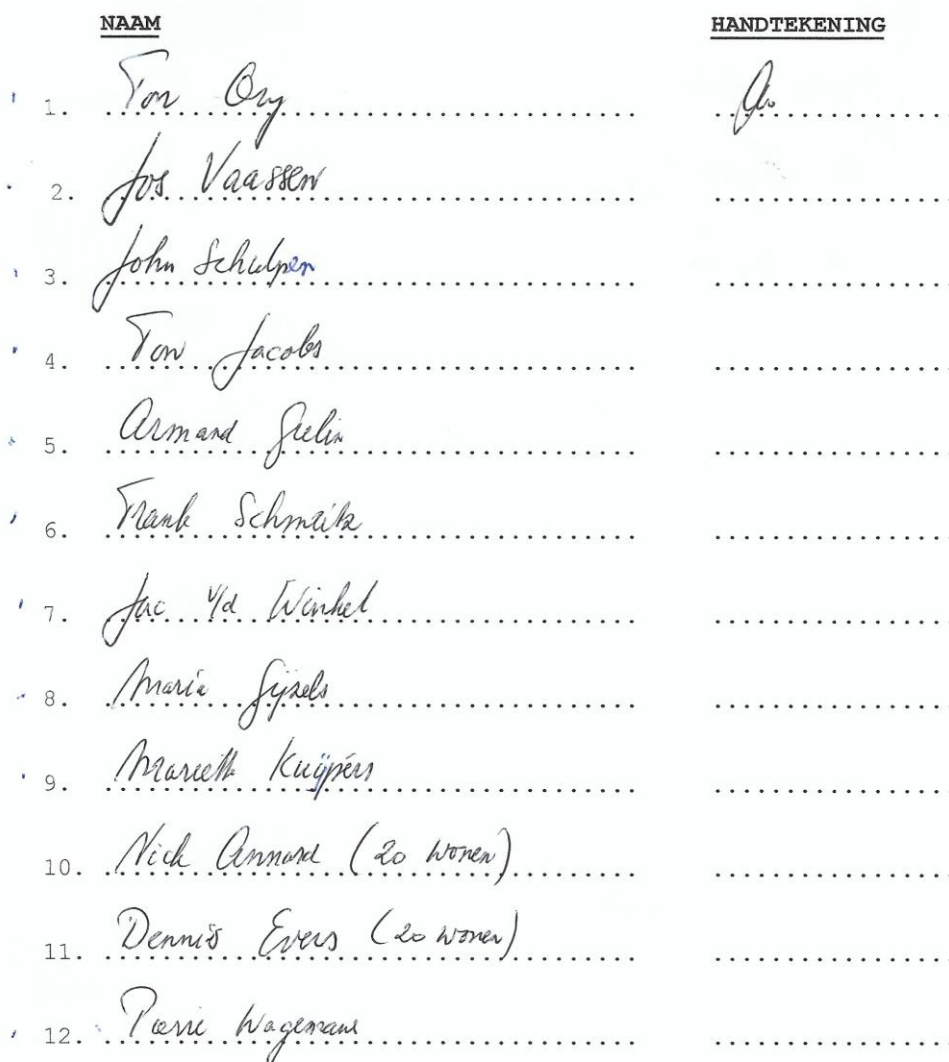 NAAM HANDTEKENING
1. Ton Ory
2. Jos Vaassen
3. John Schulpen
4. Ton Jacobs
5. Armand
6. Frank Schmeitz
7. Jac v/d Winkel
8. Maria Gijzels
9. Kuijpers
10. Nick Annard (20 wonen)
11. Dennis Evers (20 wonen)
12. Pierre Wagemans